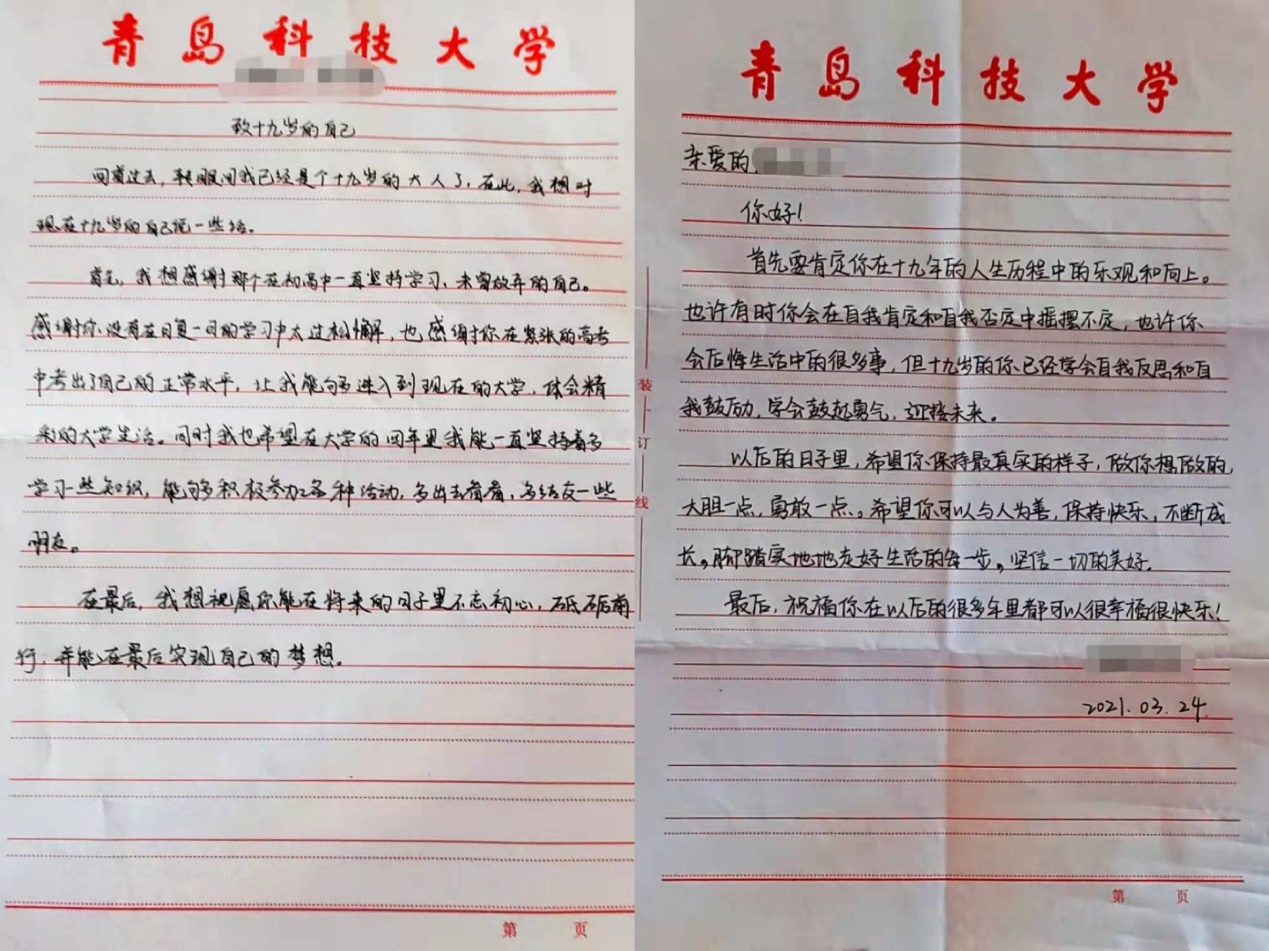 青岛科技大学
致十九岁的自己
回首过去，转眼间我已经是个十九岁的大人了，在此，我想对
现在十九岁的自己说一些话。
首先，我想感谢那个在初高中一直坚持学习，未曾放弃的自己。
感谢你没有在日复一日的学习中太过松懈，也感谢你在紧张的高考
中考出了自己的正常水平，让我能够进入到现在的大学，体会精
彩的大学生活。同时我也希望在大学的四年里我能一直坚持着多
学习一些知识，能够多积极参加各种活动，多出去看看，多结交一些
朋友。
在最后，我想祝愿你能在将来的日子里不忘初心，砥砺前
行，并能在最后实现自己的梦想。
第 页
装
订
线
青岛科技大学
亲爱的
你好！
首先要肯定你在十九年的人生历程中的乐观和向上。
也许有时你会在自我肯定和自我否定中摇摆不定，也许你
会后悔生活中的很多事，但十九岁的你已经学会自我反思和自
我鼓励，学会鼓起勇气，迎接未来。
以后的日子里，希望你保持最真实的样子，做你想做的
大胆一点，勇敢一点。希望你可以与人为善，保持快乐，不断成
长。脚踏实地地走好生活的每一步。坚信一切的美好.
最后，祝福你在以后的很多年里都可以很幸福很快乐！
2021.03.24.
第 页